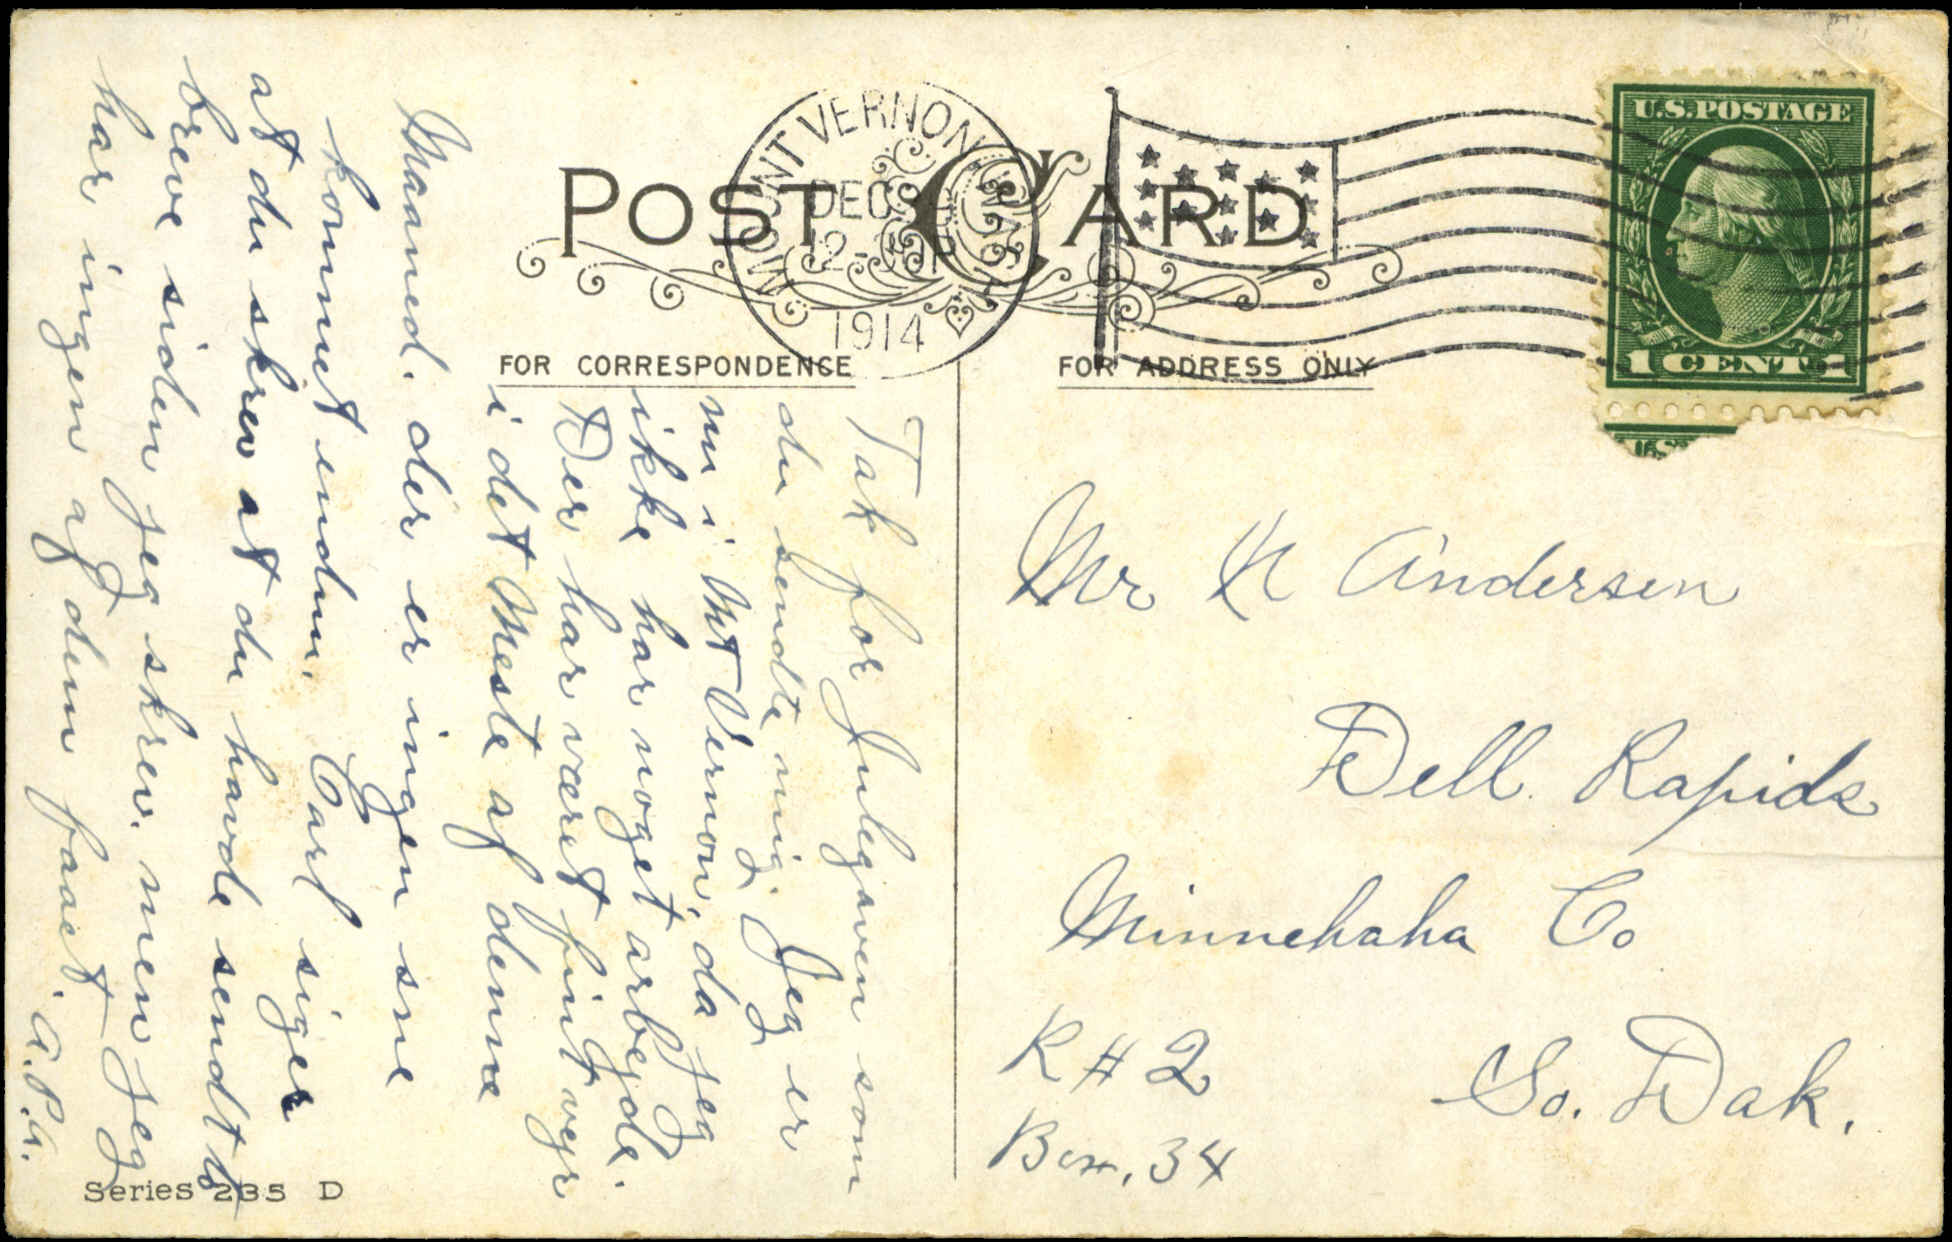 POST CARD
MOUNT VERNON
DEC
1914
U.S. POSTAGE
1 CENT 1
FOR CORRESPONDENCE
FOR ADDRESS ONLY
Tak for Julegaven som
du sendte mig. Jeg er
nu i Mt Vernon, da jeg
ikke har noget arbejde.
Der har været fint vejr
i det Meste af denne
Maaned. der er ingen sne
kommet endnu. Carl siger
at du skrev at du havde sendt to
breve siden jeg skrev. men jeg
har ingen af dem faaet. A.P.A.
Mr Andersen
Dell Rapids
Minnehaha Co
R # 2
So. Dak.
Box, 34
Series 235 D